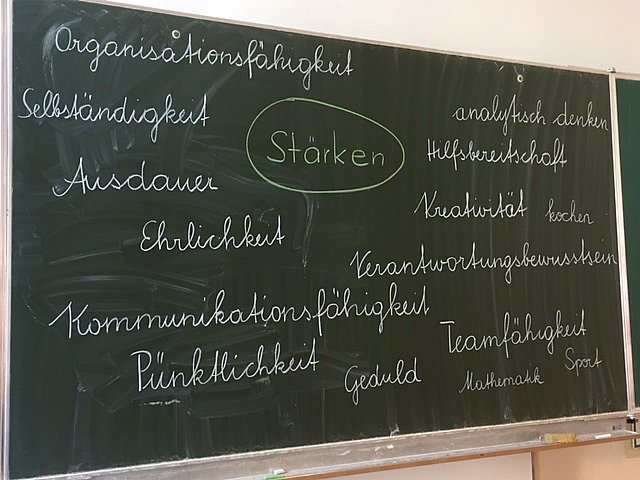 Organisationsfähigkeit
Selbständigkeit
analytisch denken
Stärken
Hilfsbereitschaft
Ausdauer
Kreativität
kochen
Ehrlichkeit
Verantwortungsbewusstsein
Kommunikationsfähigkeit
Teamfähigkeit
Pünktlichkeit
Geduld
Mathematik
Sport